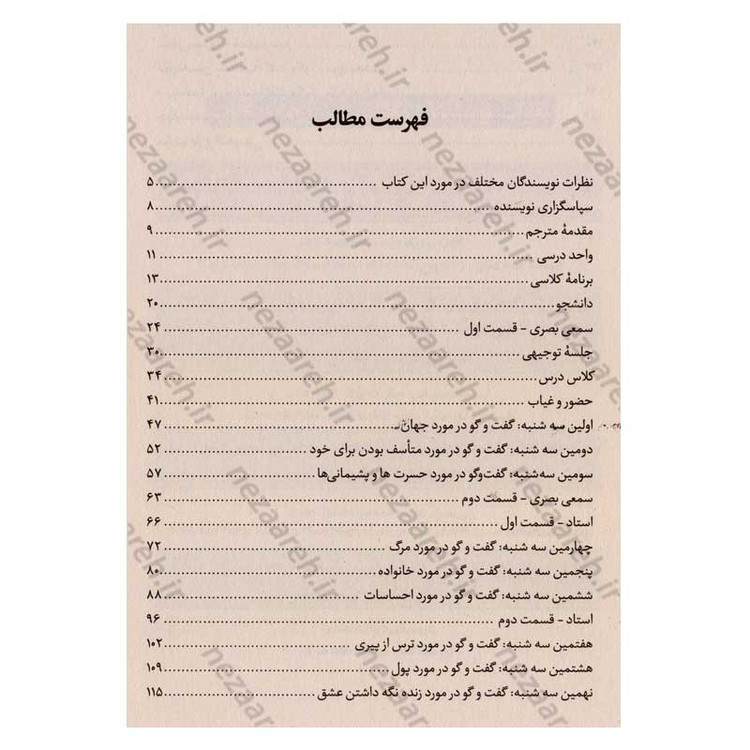 فهرست مطالب
نظرات نویسندگان مختلف در مورد این کتاب ........ ۵
سپاسگزاری نویسنده ........ ۸
مقدمهٔ مترجم ........ ۹
واحد درسی ........ ۱۱
برنامهٔ کلاسی ........ ۱۳
دانشجو ........ ۲۰
سمعی بصری - قسمت اول ........ ۲۴
جلسهٔ توجیهی ........ ۳۰
کلاس درس ........ ۳۴
حضور و غیاب ........ ۴۱
اولین سه شنبه: گفت و گو در مورد جهان ........ ۴۷
دومین سه شنبه: گفت و گو در مورد متأسف بودن برای خود ........ ۵۲
سومین سه‌شنبه: گفت‌وگو در مورد حسرت ها و پشیمانی‌ها ........ ۵۷
سمعی بصری - قسمت دوم ........ ۶۳
استاد - قسمت اول ........ ۶۶
چهارمین سه شنبه: گفت و گو در مورد مرگ ........ ۷۲
پنجمین سه شنبه: گفت و گو در مورد خانواده ........ ۸۰
ششمین سه شنبه: گفت و گو در مورد احساسات ........ ۸۸
استاد - قسمت دوم ........ ۹۶
هفتمین سه شنبه: گفت و گو در مورد ترس از پیری ........ ۱۰۲
هشتمین سه شنبه: گفت و گو در مورد پول ........ ۱۰۹
نهمین سه شنبه: گفت و گو در مورد زنده نگه داشتن عشق ........ ۱۱۵
nezaareh.ir